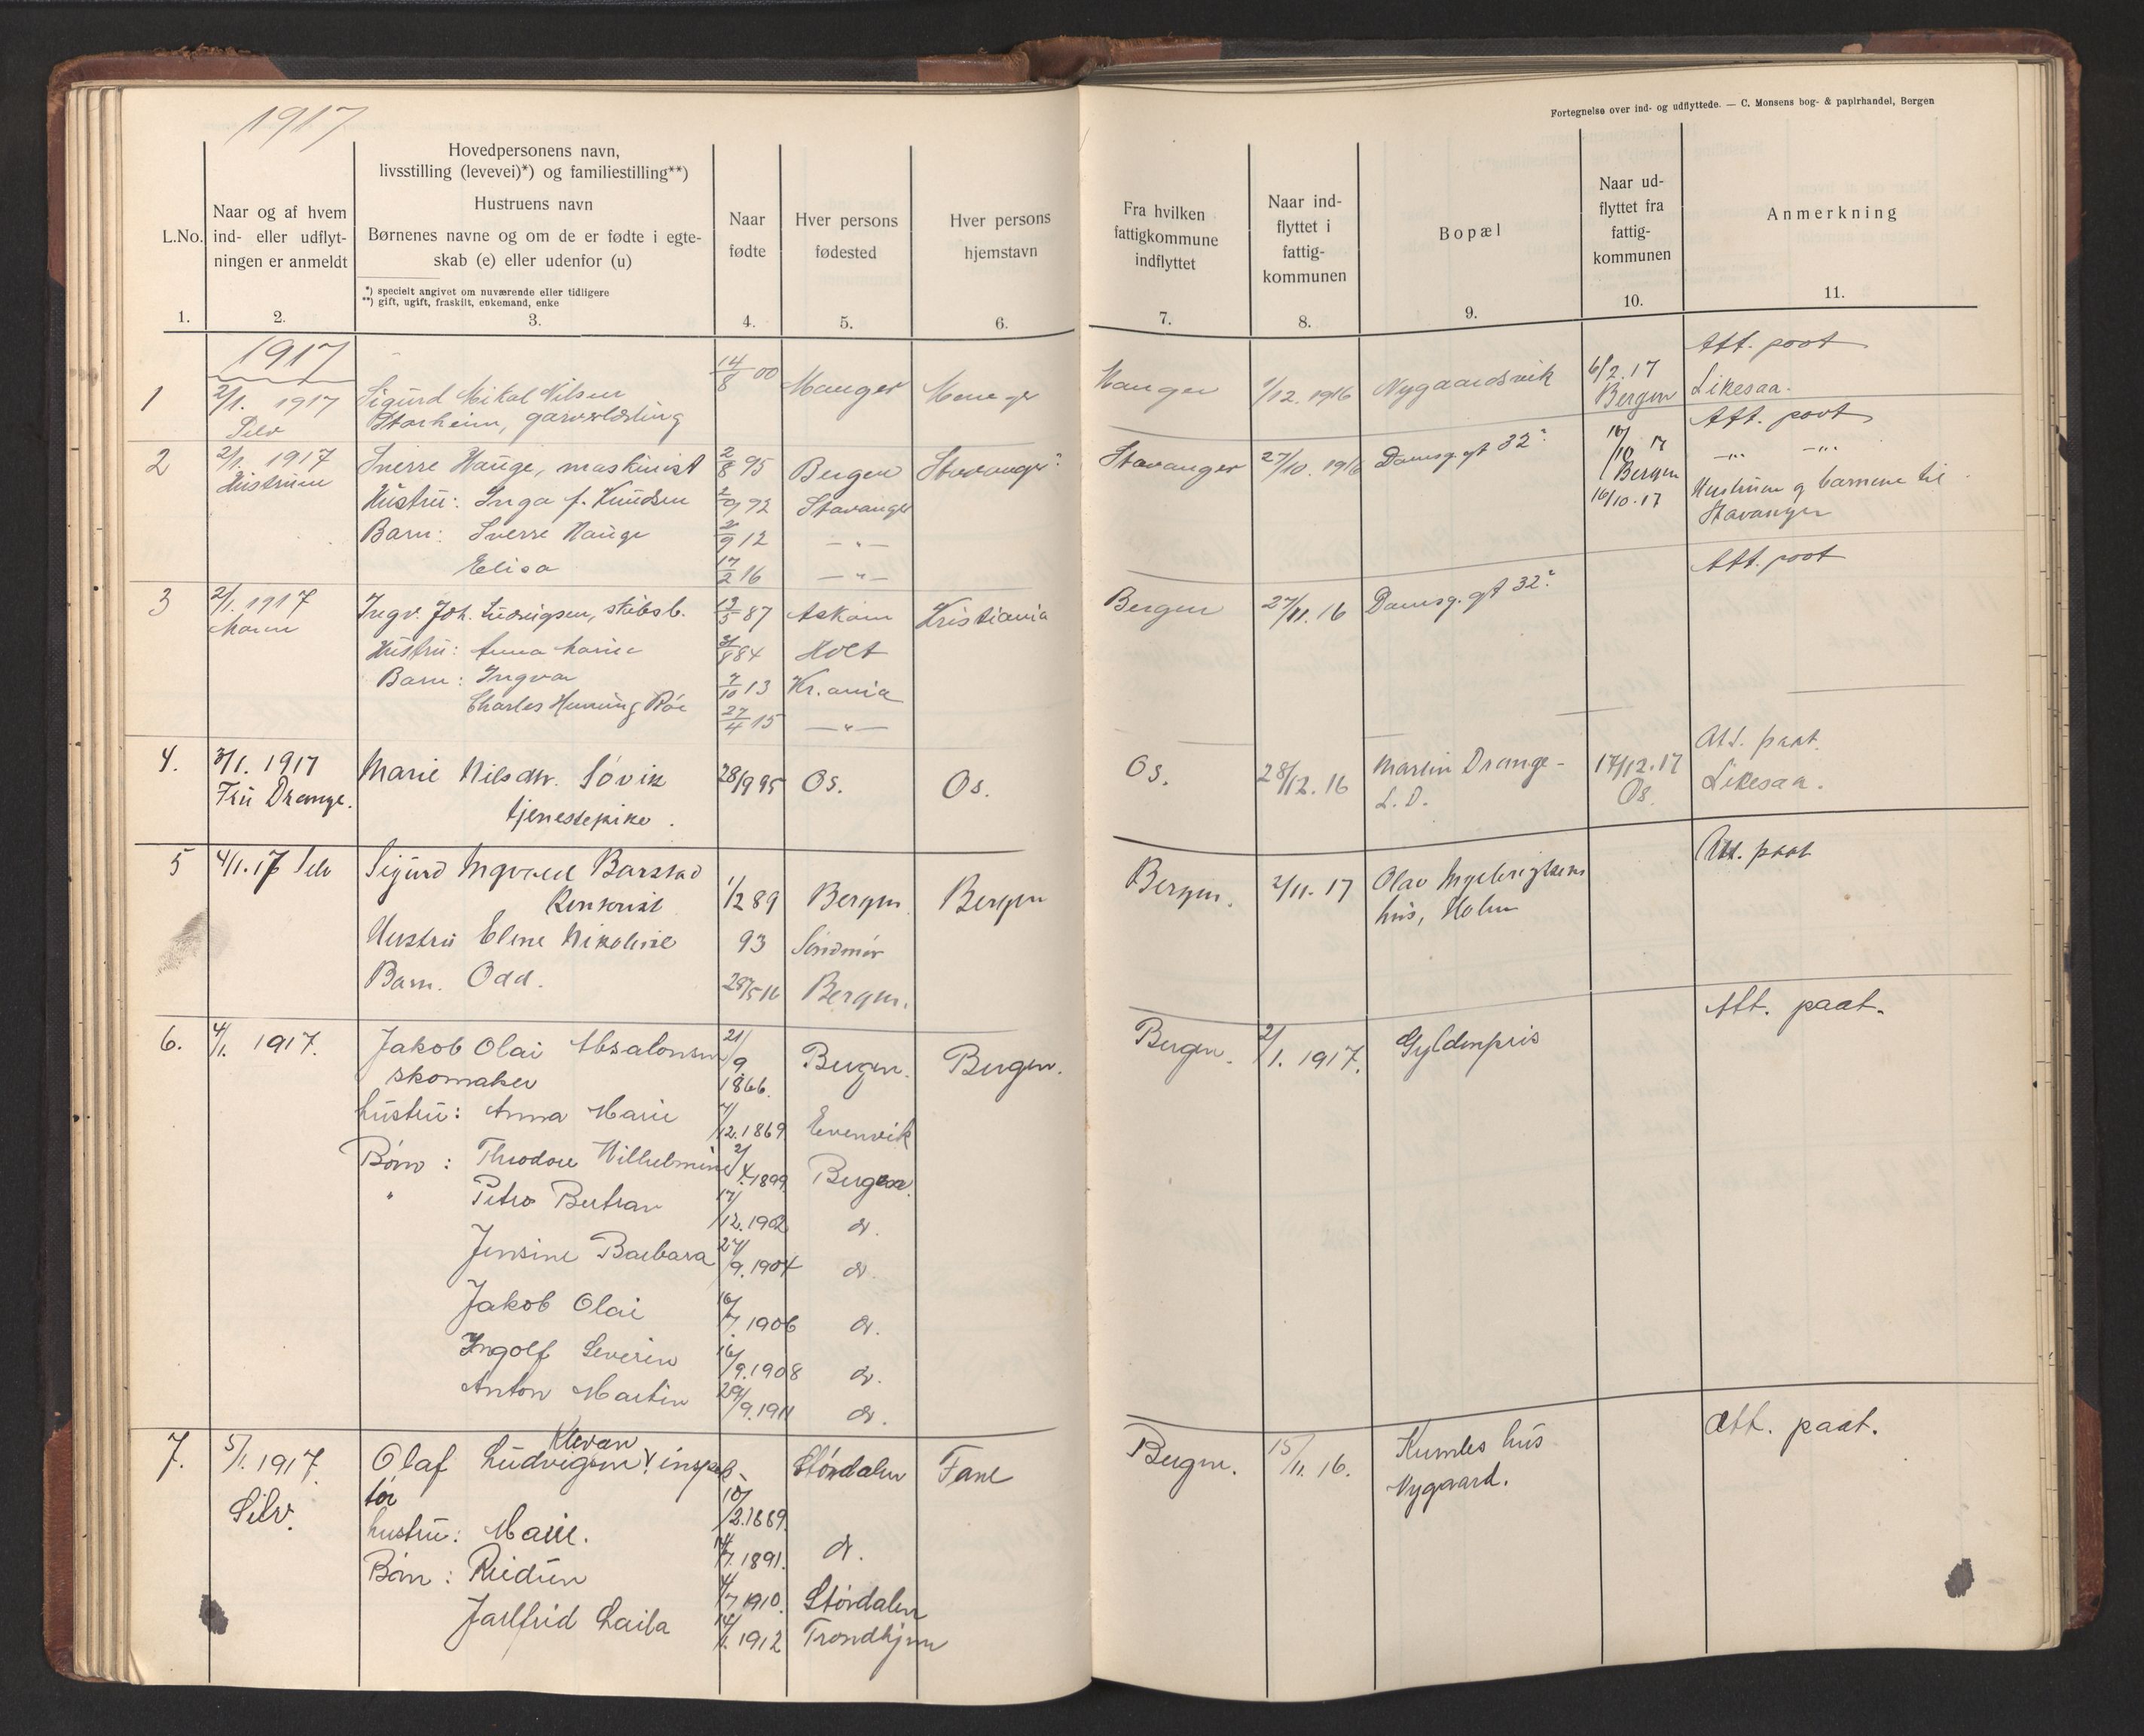 1917
Fortegnelse over ind- og udflyttede. — C. Monsens bog- & papirhandel, Bergen
L.No.
Naar og af hvem
ind- eller udflyt-
ningen er anmeldt
Hovedpersonens navn,
livsstilling (levevei)*) og familiestilling**)
Hustruens navn
Børnenes navne og om de er fødte i egte-
skab (e) eller udenfor (u)
*) specielt angivet om nuværende eller tidligere
**) gift, ugift, fraskilt, enkemand, enke
Naar
fødte
Hver persons
fødested
Hver persons
hjemstavn
Fra hvilken
fattigkommune
indflyttet
Naar ind-
flyttet i
fattig-
kommunen
Bopæl
Naar ud-
flyttet fra
fattig-
kommunen
Anmerkning
1. 2. 3. 4. 5. 6. 7. 8. 9. 10. 11.
1917
1 2/1. 1917 Sigurd Mikal Nilsen 14/8 00 Manger Manger Manger 1/12. 1916 Nygaardsvik 6/2. 17 Att. poot
Selv Storheim, garverlærling Bergen Likesaa.
2 2/1. 1917 Sverre Hauge, maskinist 2/8 95 Bergen Stavanger? Stavanger 27/10. 1916 Damsg. gt 32² 16/10 17 Att. poot
Hustruen Hustru: Inga f. Knudsen 92 Stavanger Bergen —"— —"—
Barn: Sverre Hauge 12 —"— 16/10.17 Hustruen og barnene til
Elisa 17/2 16 —"— Stavanger
3 2/1. 1917 Ingv. Joh. Ludvigsen, skibsb. 87 Askøien Kristiania Bergen 27/11. 16 Damsg. gt 32² Att. poot
Hustru: Anna Marie 84 Holt
Barn: Ingvar 7/10 13 Kr.ania
Charles Henning Roe 27/4 15 —"—
4. 3/1. 1917 Marie Nilsdtr. Søvik 28/9 95 Os. Os. Os. 28/12. 16 Martin Drange- 17/12.17 Att. paat.
Fru Drange. tjenestepike. L.D. Os. Likesaa.
5 4/1.17 Selv Sigurd Ingvald Barstad 1/2 89 Bergen Bergen Bergen. 2/11. 17 Olav Ingebrigtsens Att. paat
Kontorist hus, Holm
Hustru Elene Nikoline 93 Søndmør
Barn. Odd. 28/5 16 Bergen.
6. 4/1. 1917. Jakob Olai Absalonsen 21/9 1866. Bergen. Bergen. Bergen. 2/1. 1917. Gyldenpris Att. paat.
skomaker
hustru: Anna Marie 7/12.1869 Evenvik
Børn: Theodore Wilhelmine 2/4.1899 Bergen.
" Petra Bertran 17/12.1902 do.
Jensine Barbara 27/9.1904 do.
Jakob Olai 16/7. 1906 do.
Ingolf Severin 16/9.1908 do.
Anton Martin 29/9.1911 do.
7. 5/1. 1917. Olaf Ludvigsen Klevan inspek- 10/2.1889. Størdalen Fane Bergen. 15/11. 16. Kumles hus Att. paat.
Selv. tør Nygaard.
hustru: Marie. 14/7. 1891. do.
Børn: Reidun 4/7 1910. Størdalen
Jarlfrid Laila 14/1. 1912 Trondhjem